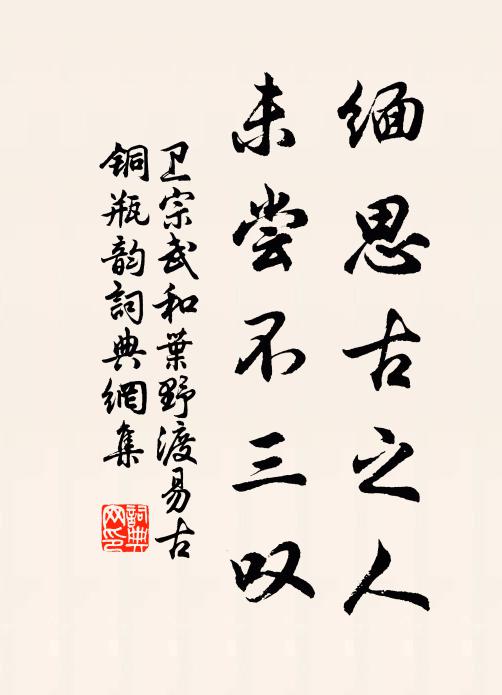 缅思古之人
未尝不三叹
卫宗武和葉野渡易古
铜瓶韵詞典網集